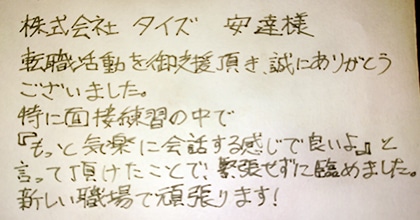 株式会社 タイズ 安達様
転職活動を御支援頂き、誠にありがとう
ございました。
特に面接練習の中で
『もっと気楽に会話する感じで良いよ』と
言って頂けたことで、緊張せずに臨めました。
新しい職場で頑張ります!